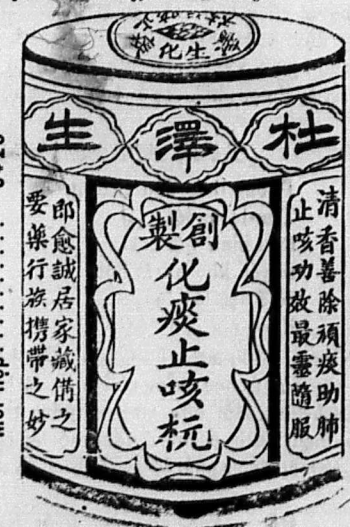 生化
杜澤生
創製
化痰止咳杬
清香善除頑痰助肺
止咳功效最靈隨服
即愈誠居家藏備之
要藥行旅携帶之妙